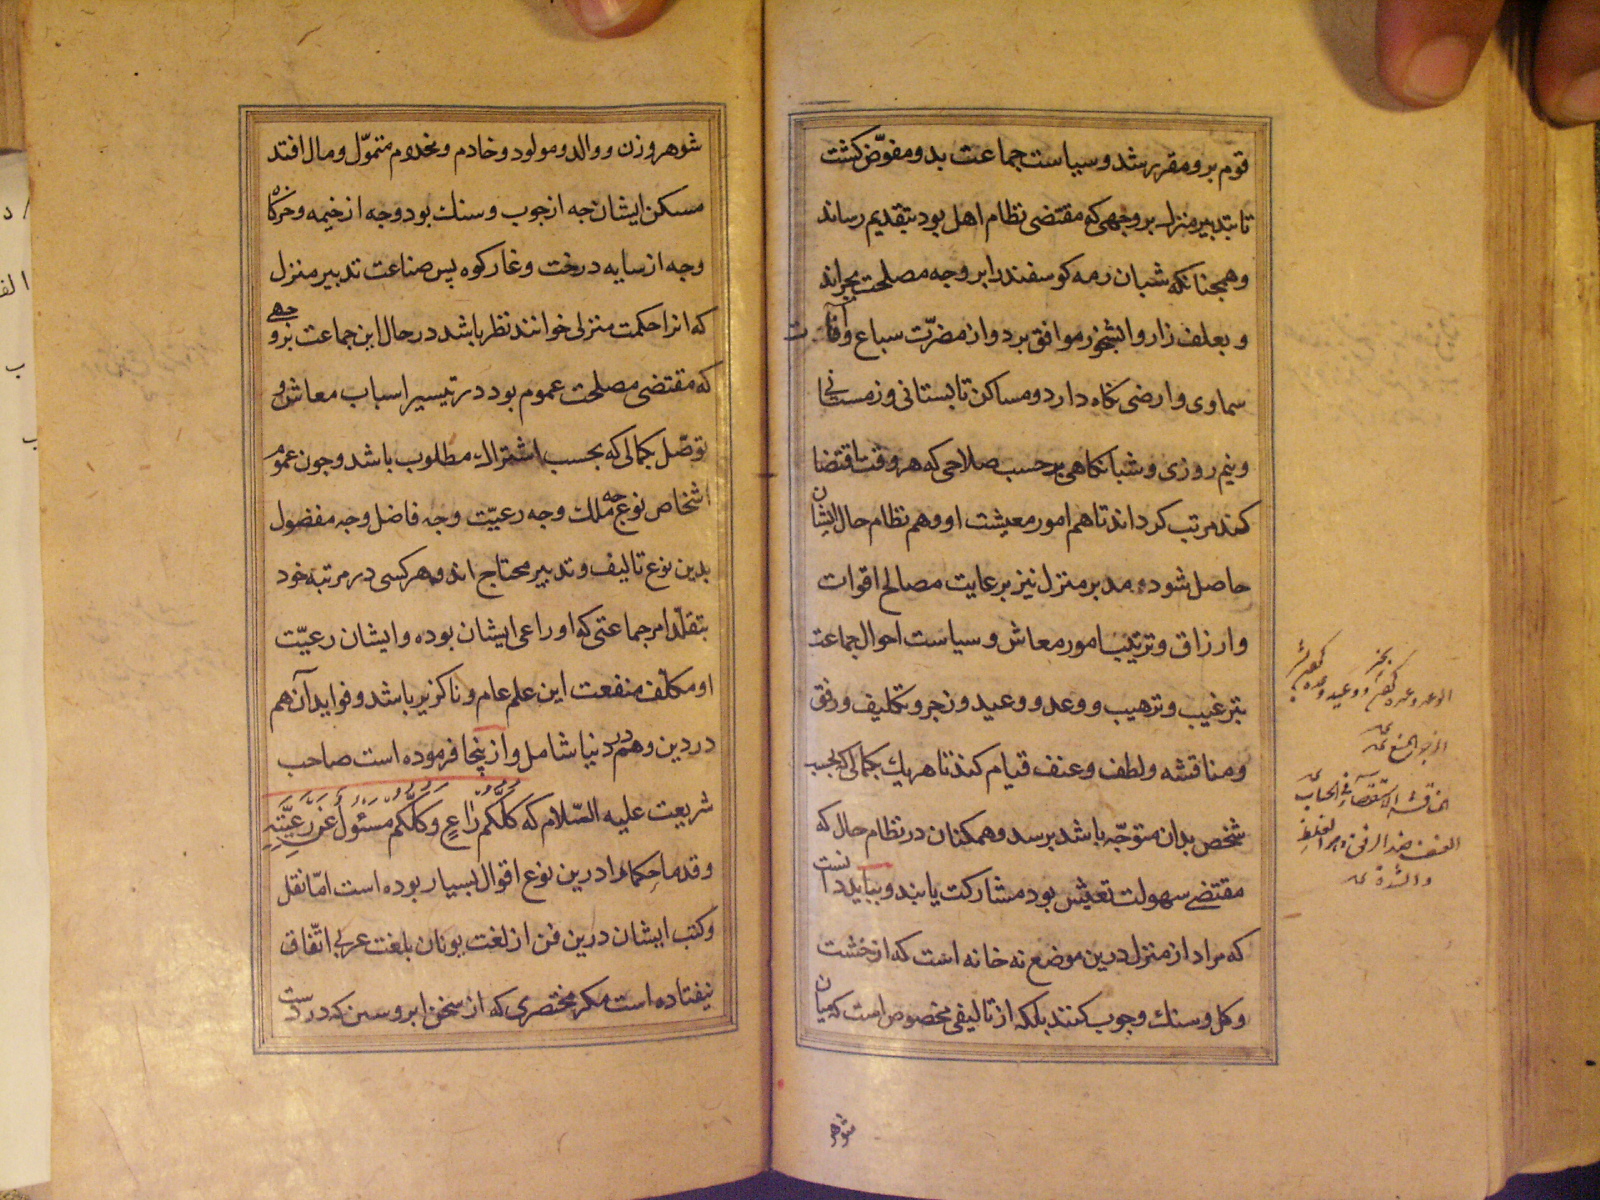 قوم برو مقرر شد و سیاست جماعت بدو مفوّض کشت
تا بتدبیر منزل بر وجهی که مقتضی نظام اهل بود بتقدیم رساند
و همجنانکه شبان رمه کوسفند را بر وجه مصلحت بجراند
و بعلف زار و ابشخور موافق برد و از مضرّت سباع و آفات
سماوی و ارضی نکاه دارد و مساکن تابستانی و زمستانی
و نیم روزی و شبانکاهی بر حسب صلاحی که هر وقت اقتضا
کند مرتب کرداند تا هم امور معیشت او و هم نظام حال ایشان
حاصل شود مدبر منزل نیز برعایت مصالح اقوات
و ارزاق و ترتیب امور معاش و سیاست احوال جماعت
بترغیب و ترهیب و وعد و وعید و زجر و تکلیف و رفق
و مناقشه و لطف و عنف قیام کند تا هر یک بکمالی که بحسب
شخص بدان متوجّه باشد برسد و همکنان در نظام حال که
مقتضی سهولت تعیّش بود مشارکت یابند و بباید دانست
که مراد از منزل درین موضع نه خانه است که از خشت
و کل و سنک و جوب کنند بلکه از تالیفی مخصوص است که میان
شوهر
المناقشه الاستقصاء فی الحساب
العنف ضد الرفق
شوهر و زن و والد و مولود و خادم و مخدوم متموّل و مال افتد
مسکن ایشان جه از جوب و سنک بود و جه از خیمه و خرکاه
و جه از سایه درخت و غار کوه پس صناعت تدبیر منزل
که انرا حکمت منزلی خوانند نظر باشد در حال این جماعت بر وجهی
که مقتضی مصلحت عموم بود در تیسیر اسباب معاش و
توصّل بکمالی که بحسب اشتراک مطلوب باشد و جون عموم
اشخاص نوع جه ملک و جه رعیّت و جه فاضل و جه مفضول
بدین نوع تالیف و تدبیر محتاج اند و هر کسی در مرتبه خود
بتقلّد امر جماعتی که او راعی ایشان بوده و ایشان رعیّت
او مکلّف منفعت این علم عام و ناکزیر باشد و فواید آن هم
در دین و هم در دنیا شامل و ازینجا فرموده است صاحب
شریعت علیه السّلام که کُلُّکُم رَاعٍ وَکُلُّکُم مَسْئُولٌ عَن رَعِیَّتِهِ
و قدماء حکما را درین نوع اقوال بسیار بوده است امّا نقل
و کتب ایشان درین فن از لغت یونان بلغت عربی اتّفاق
نیفتاده است مکر مختصری که از سخن ابروسن که در دست